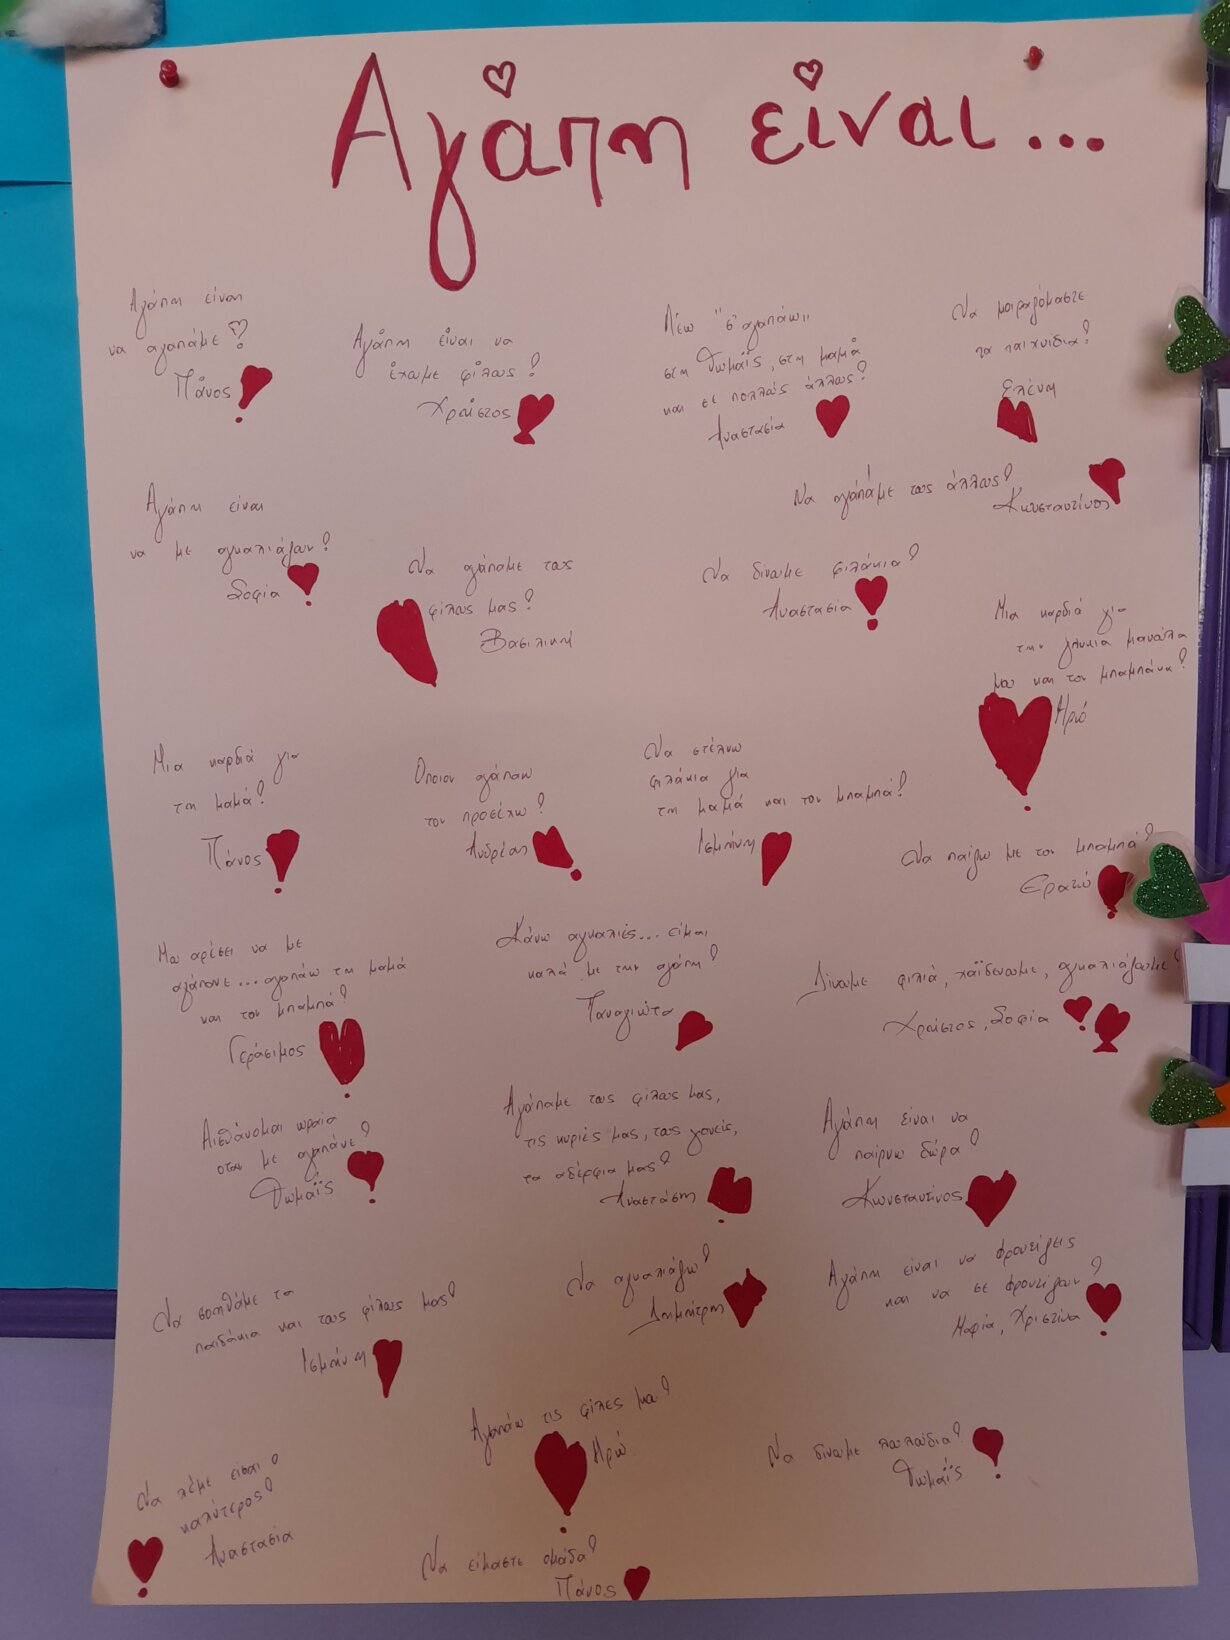 Αγάπη είναι...
Αγάπη είναι
να αγαπάμε!
Πάνος
Αγάπη είναι να
έχουμε φίλους!
Χρήστος
Λέω "σ' αγαπάω"
στη Θωμαΐς, στη μαμά
και σε πολλούς άλλους!
Αναστασία
Να μοιραζόμαστε
τα παιχνίδια!
Ελένη
Αγάπη είναι
να με αγκαλιάζουν!
Σοφία
Να αγαπάμε τους
φίλους μας!
Βασιλική
Να αγαπάμε τους άλλους!
Κωνσταντίνος
Να δίνουμε φιλάκια!
Αναστασία
Μια καρδιά για
την γλυκιά μανούλα
μου και τον μπαμπάκα!
Ηρώ
Μια καρδιά για
τη μαμά!
Πάνος
Όποιον αγαπάω
τον προσέχω!
Ανδρέας
Να στέλνω
φιλάκια για
τη μαμά και τον μπαμπά!
Ισμήνη
Να παίζω με τον μπαμπά!
Ερατώ
Μου αρέσει να με
αγαπάνε... αγαπάω τη μαμά
και τον μπαμπά!
Γεράσιμος
Κάνω αγκαλιές... είμαι
καλά με την αγάπη!
Παναγιώτα
Δίνουμε φιλιά, χαϊδεύουμε, αγκαλιάζουμε!
Χρήστος, Σοφία
Αισθάνομαι ωραία
όταν με αγαπάνε!
Θωμαΐς
Αγαπάμε τους φίλους μας,
τις κυρίες μας, τους γονείς,
τα αδέρφια μας!
Αναστάσης
Αγάπη είναι να
παίρνω δώρα!
Κωνσταντίνος
Να βοηθάμε τα
παιδάκια και τους φίλους μας!
Ισμήνη
Να αγκαλιάζω!
Δημήτρης
Αγάπη είναι να φροντίζεις
και να σε φροντίζουν!
Μαρία, Χριστίνα
Αγαπάω τις φίλες μου!
Ηρώ
Να δίνουμε λουλούδια!
Θωμαΐς
Να λέμε είσαι ο
καλύτερος!
Αναστασία
Να είμαστε ομάδα!
Πάνος